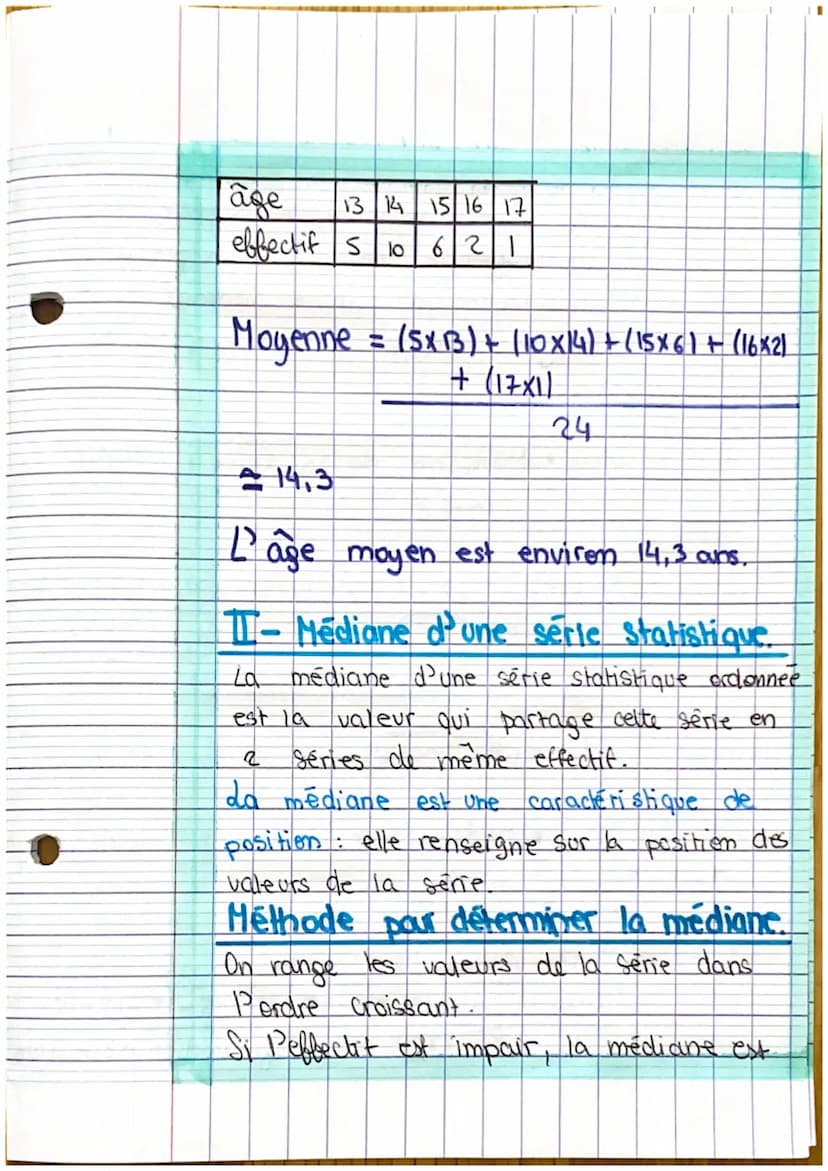 âge 13 14 15 16 17
effectif 5 10 6 2 1
Moyenne = (5x13) + (10x14) + (15x6) + (16x2)
+ (17x1)
24
≃ 14,3
L'âge moyen est environ 14,3 ans.
II- Médiane d'une série statistique.
La médiane d'une série statistique ordonnée
est la valeur qui partage cette série en
2 séries de même effectif.
La médiane est une caractéristique de
position : elle renseigne sur la position des
valeurs de la série.
Méthode pour déterminer la médiane.
On range les valeurs de la série dans
l'ordre croissant.
Si l'effectif est impair, la médiane est